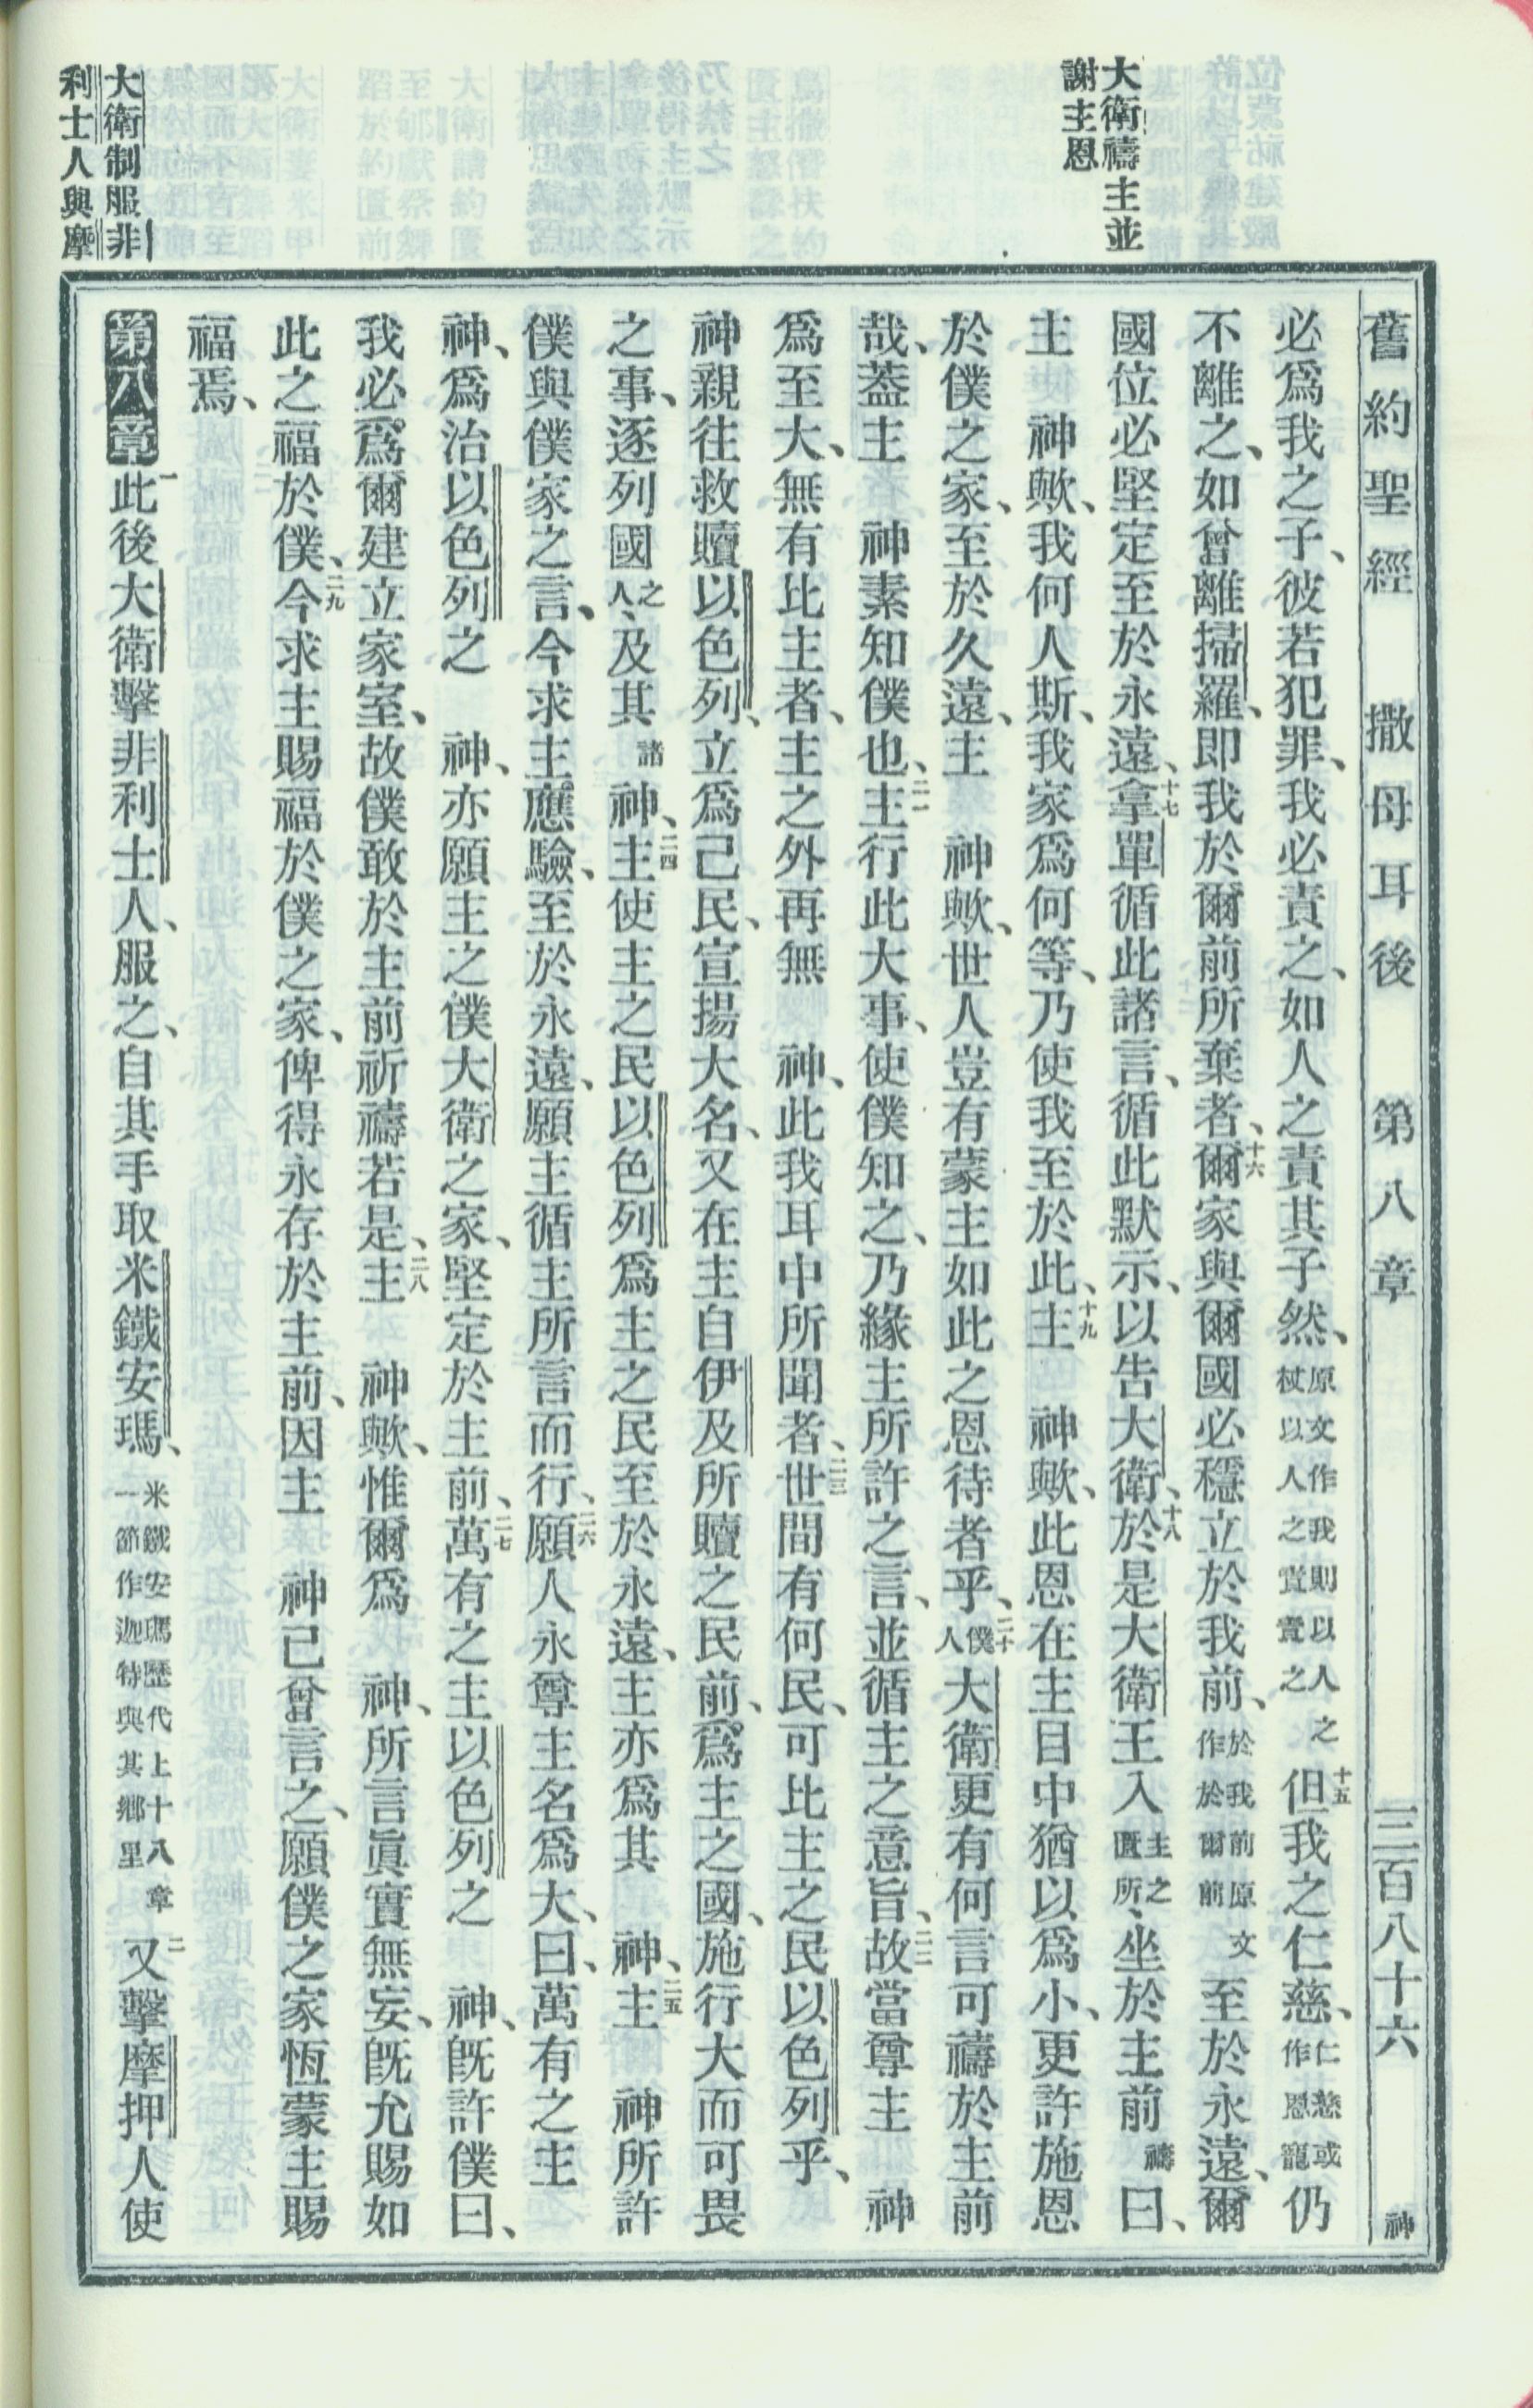 舊約聖經　撒母耳後　第八章　三百八十六　神
大衛禱主並
謝主恩
必爲我之子、彼若犯罪、我必責之、如人之責其子然、原文作我則以人之杖以人之責責之十五但我之仁慈、仁慈或作恩寵仍
不離之、如曾離掃羅、即我於爾前所棄者、十六爾家與爾國必穩立於我前、於我前原文作於爾前至於永遠、爾
國位必堅定至於永遠、十七拿單循此諸言、循此默示、以告大衛、十八於是大衛王入主之匱所、坐於主前禱曰、
主　神歟、我何人斯、我家爲何等、乃使我至於此、十九主　神歟、此恩在主目中猶以爲小、更許施恩
於僕之家、至於久遠、主　神歟、世人豈有蒙主如此之恩待者乎、二十僕人大衛更有何言可禱於主前
哉、葢主　神素知僕也、二一主行此大事、使僕知之、乃緣主所許之言、並循主之意旨、二二故當尊主　神
爲至大、無有比主者、主之外再無　神、此我耳中所聞者、二三世間有何民、可比主之民以色列乎、
神親往救贖以色列、立爲己民、宣揚大名、又在主自伊及所贖之民前、爲主之國、施行大而可畏
之事、逐列國之人、及其諸神、二四主使主之民以色列爲主之民至於永遠、主亦爲其　神、二五主　神所許
僕與僕家之言、今求主應驗、至於永遠、願主循主所言而行、二六願人永尊主名爲大、曰、萬有之主
神、爲治以色列之　神、亦願主之僕大衛之家、堅定於主前、二七萬有之主以色列之　神、旣許僕曰、
我必爲爾建立家室、故僕敢於主前祈禱若是、二八主　神歟、惟爾爲　神、所言眞實無妄、旣允賜如
此之福於僕、二九今求主賜福於僕之家、俾得永存於主前、因主　神已曾言之、願僕之家恆蒙主賜
福焉、
大衛制服非
利士人與摩
第八章一此後大衛擊非利士人、服之、自其手取米鐵安瑪、米鐵安瑪歷代上十八章一節作迦特與其鄉里二又擊摩押人使